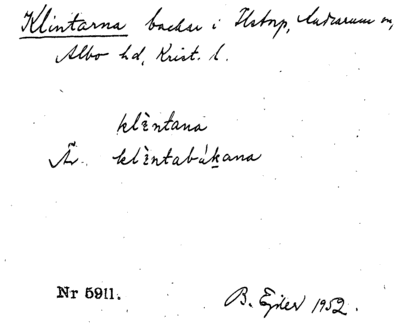 Klintarna backar i Ilstorp, Andrarum sn,
Albo hd, Krist. l.
klèntana
Äv. klèntabákana
Nr 5911. B. Ejder 1952.